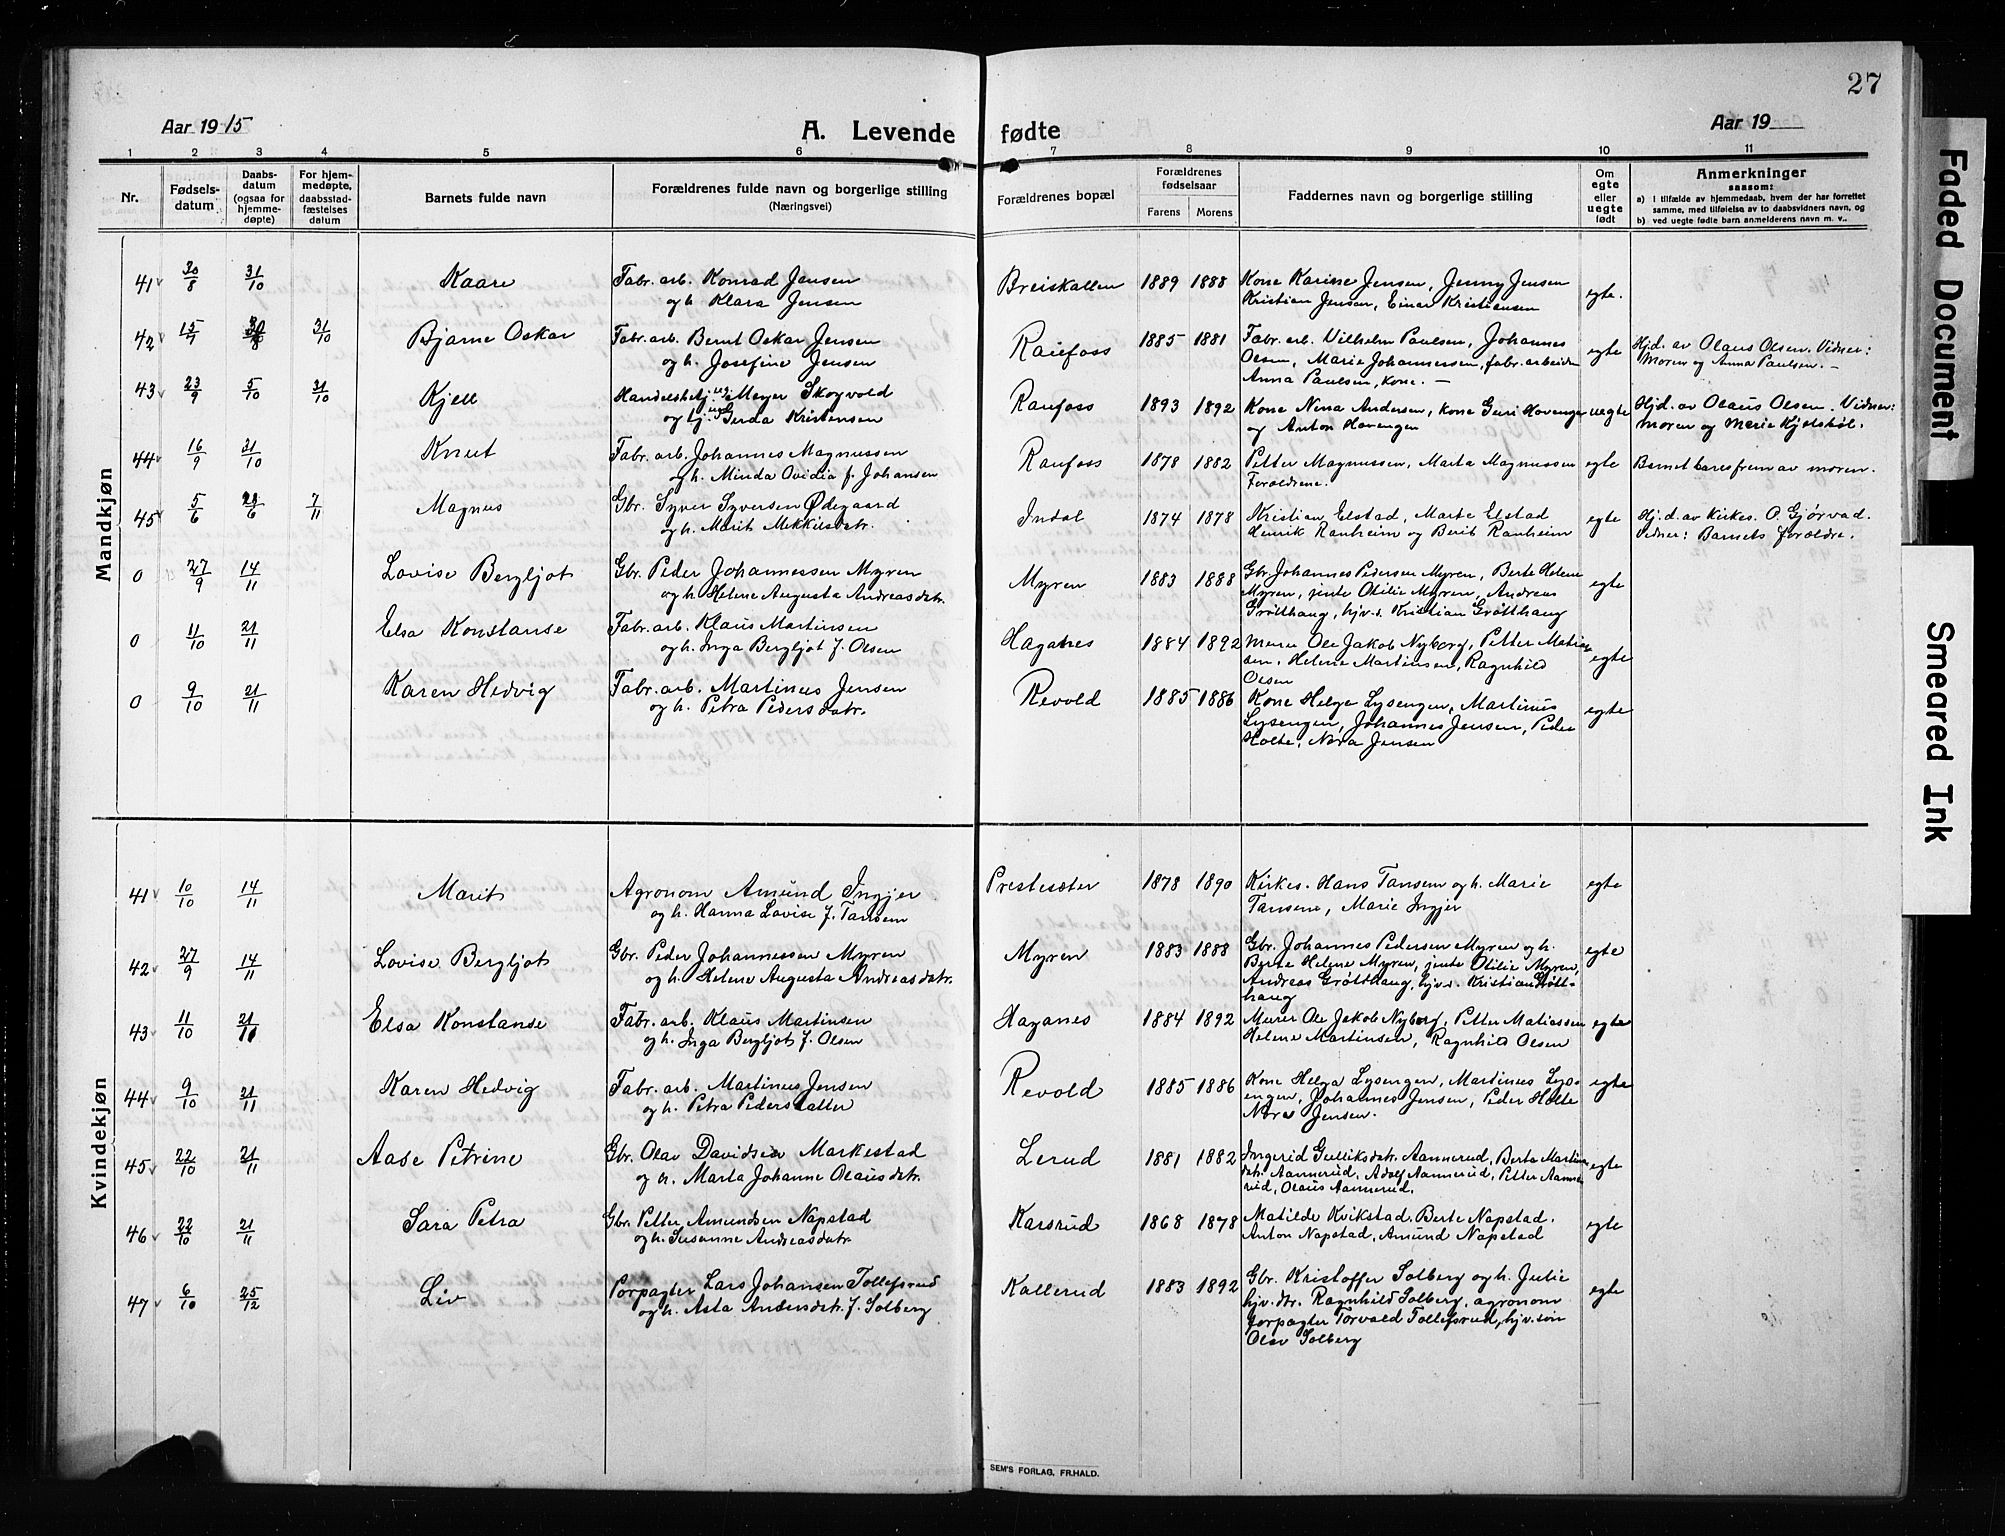 27
Aar 1915
A. Levende fødte
Aar 19
1 2 3 4 5 6 7 8 9 10 11
Nr.
Fødsels-
datum
Daabs-
datum
(ogsaa for
hjemme-
døpte)
For hjem-
medøpte,
daabsstad-
fæstelses
datum
Barnets fulde navn
Forældrenes fulde navn og borgerlige stilling
(Næringsvei)
Forældrenes bopæl
Forældrenes
fødselsaar
Farens Morens
Faddernes navn og borgerlige stilling
Om
egte
eller
uegte
født
Anmerkninger
saasom:
a) I tilfælde av hjemmedaab, hvem der har forrettet
samme, med tilføielse av to daabsvidners navn, og
b) ved uegte fødte barn anmelderens navn m. v..
Mandkjøn
41 30/8 31/10 Kaare
Fabr. arb. Konrad Jensen
og h. Klara Jensen
Breiskallen 1889 1888
Kone Karine Jensen, Jenny Jensen
Kristian Jensen, Einar Kristiansen
egte.
42 15/7 31/10 Bjarne Oskar
Fabr. arb. Bernt Oskar Jensen
og h. Josefine Jensen
Raufoss 1885 1881
Fabr. arb. Vilhelm Paulsen, Johannes
Olsen, Marie Johannessen, fabr. arbeider
Anna Paulsen, kone. —
egte
Hjd. av Olaus Olsen. Vidner:
Moren og Anna Paulsen. —
43 23/9 5/10 31/10 Kjell
Handelsbetj. ug. Meyer Skogvold
og tj. ug. Gerda Kristensen
Raufoss 1893 1892
Kone Nina Andersen, kone Guri Hovengen
og Anton Hovengen
uegte
Hjd. av Olaus Olsen. Vidner:
moren og Marie Kjølsböl.
44 16/9 31/10 Knut
Fabr. arb. Johannes Magnussen
og h. Minda Ovidia f. Johansen
Raufoss 1878 1882
Petter Magnussen, Marta Magnussen
Forældrene.
egte
Barnet baares frem av moren.
45 5/6 20/6 7/11 Magnus
Gbr. Syver Syversen Ødegaard
og h. Marit Mikkelsdtr.
Indal 1874 1878
Kristian Elstad, Marte Elstad
Henrik Ranheim og Berit Ranheim
egte
Hj.d. av Kirkes. O. Gjørvad.
Vidner: Barnets forældre.
0 27/9 14/11 Lovise Bergljot
Gbr. Peder Johannessen Myren
og h. Helene Augusta Andreasdtr.
Myren 1883 1888
Gbr. Johannes Pedersen Myren, Berte Helene
Myren, jente Otilie Myren, Andreas
Grøtthaug, hjv.s. Kristian Grøtthaug
egte
0 11/10 21/11 Elsa Konstanse
Fabr. arb. Klaus Martinsen
og h. Inga Bergljot f. Olsen
Haganes 1884 1892
Murer Ole Jakob Nyborg, Petter Matias-
sen, Helene Martinsen, Ragnhild
Olsen
egte
0 9/10 21/11 Karen Hedvig
Fabr. arb. Martinus Jensen
og h. Petra Pedersdatr.
Revold 1885 1886
Kone Helga Lysengen, Martinus
Lysengen, Johannes Jensen, Peder
Holte, Nora Jensen
egte
Kvindekjøn
41 10/10 14/11 Marit
Agronom Amund Ingjer
og h. Hanna Lovise f. Tansem
Prestesæter 1878 1890
Kirkes. Hans Tansem og h. Marie
Tansene, Marie Ingjer
egte
42 27/9 14/11 Lovise Bergljot
Gbr. Peder Johannessen Myren
og h. Helene Augusta Andreasdatr.
Myren 1883 1888
Gbr. Johannes Pedersen Myren og h.
Berte Helene Myren, jente Otilie Myren,
Andreas Grøtthaug, hjv.s. Kristian Grøtt-
haug
egte
43 11/10 21/11 Elsa Konstanse
Fabr. arb. Klaus Martinsen
og h. Inga Bergljot f. Olsen
Haganes 1884 1892
Murer Ole Jakob Nyborg, Petter Matiassen
Helene Martinsen, Ragnhild Olsen
egte
44 9/10 21/11 Karen Hedvig
Fabr. arb. Martinus Jensen
og h. Petra Pedersdatter
Revold 1885 1886
Kone Helga Lysengen, Martinus Lys-
engen, Johannes Jensen, Peder Holte
Nora Jensen.
egte
45 22/10 21/11 Aase Petrine
Gbr. Olav Davidsen Markestad
og h. Marta Johanne Olausdatr.
Lerud 1881 1882
Ingerid Gulliksdtr. Aannerud, Berte Martins-
dtr. Aannerud, Adolf Aannerud, Petter Aanne-
rud, Olaus Aannerud.
egte
46 22/10 21/11 Sara Petra
Gbr. Petter Amundsen Napstad
og h. Susanne Andreasdatr.
Karsrud 1868 1878
Matilde Kvikstad. Berte Napstad.
Anton Napstad, Amund Napstad
egte
47 6/10 25/12 Liv
Forpagter Lars Johansen Tollefsrud
og h. Asta Andersdtr. f. Solberg
Kallerud 1883 1892
Gbr. Kristoffer Solberg og h. Julie
hjv. dtr. Ragnhild Solberg, agronom
forpagter Torvald Tollefsrud, hjv. søn
Olav Solberg
egte
SEM'S FORLAG, FR.HALD.
Faded Document
Smeared Ink